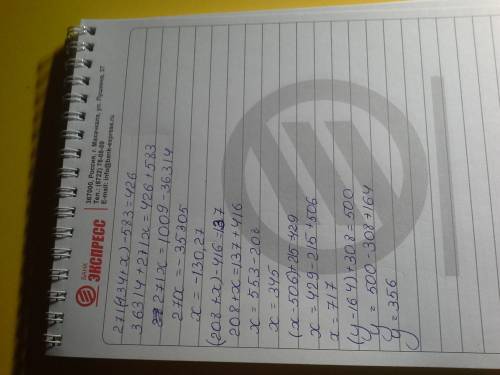 БАНК
ЭКСПРЕСС
367000, Россия, г. Махачкала, ул. Пушкина, 37
E-mail: info@bank-express.ru
271(134+x)-583=426
36314+271x=426+583
271x=1009-36314
27x=-35305
x=-130,27
(208+x)-416=137
208+x=137+416
x=553-208
x=345
(x-506)+215=429
x=429-215+506
x=717
(y-164)+308=500
y=500-308+164
y=356